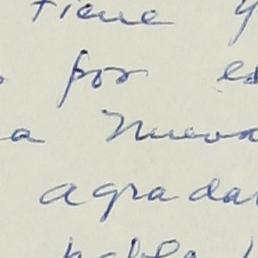 tiene y
por es
a Nueva
agrada